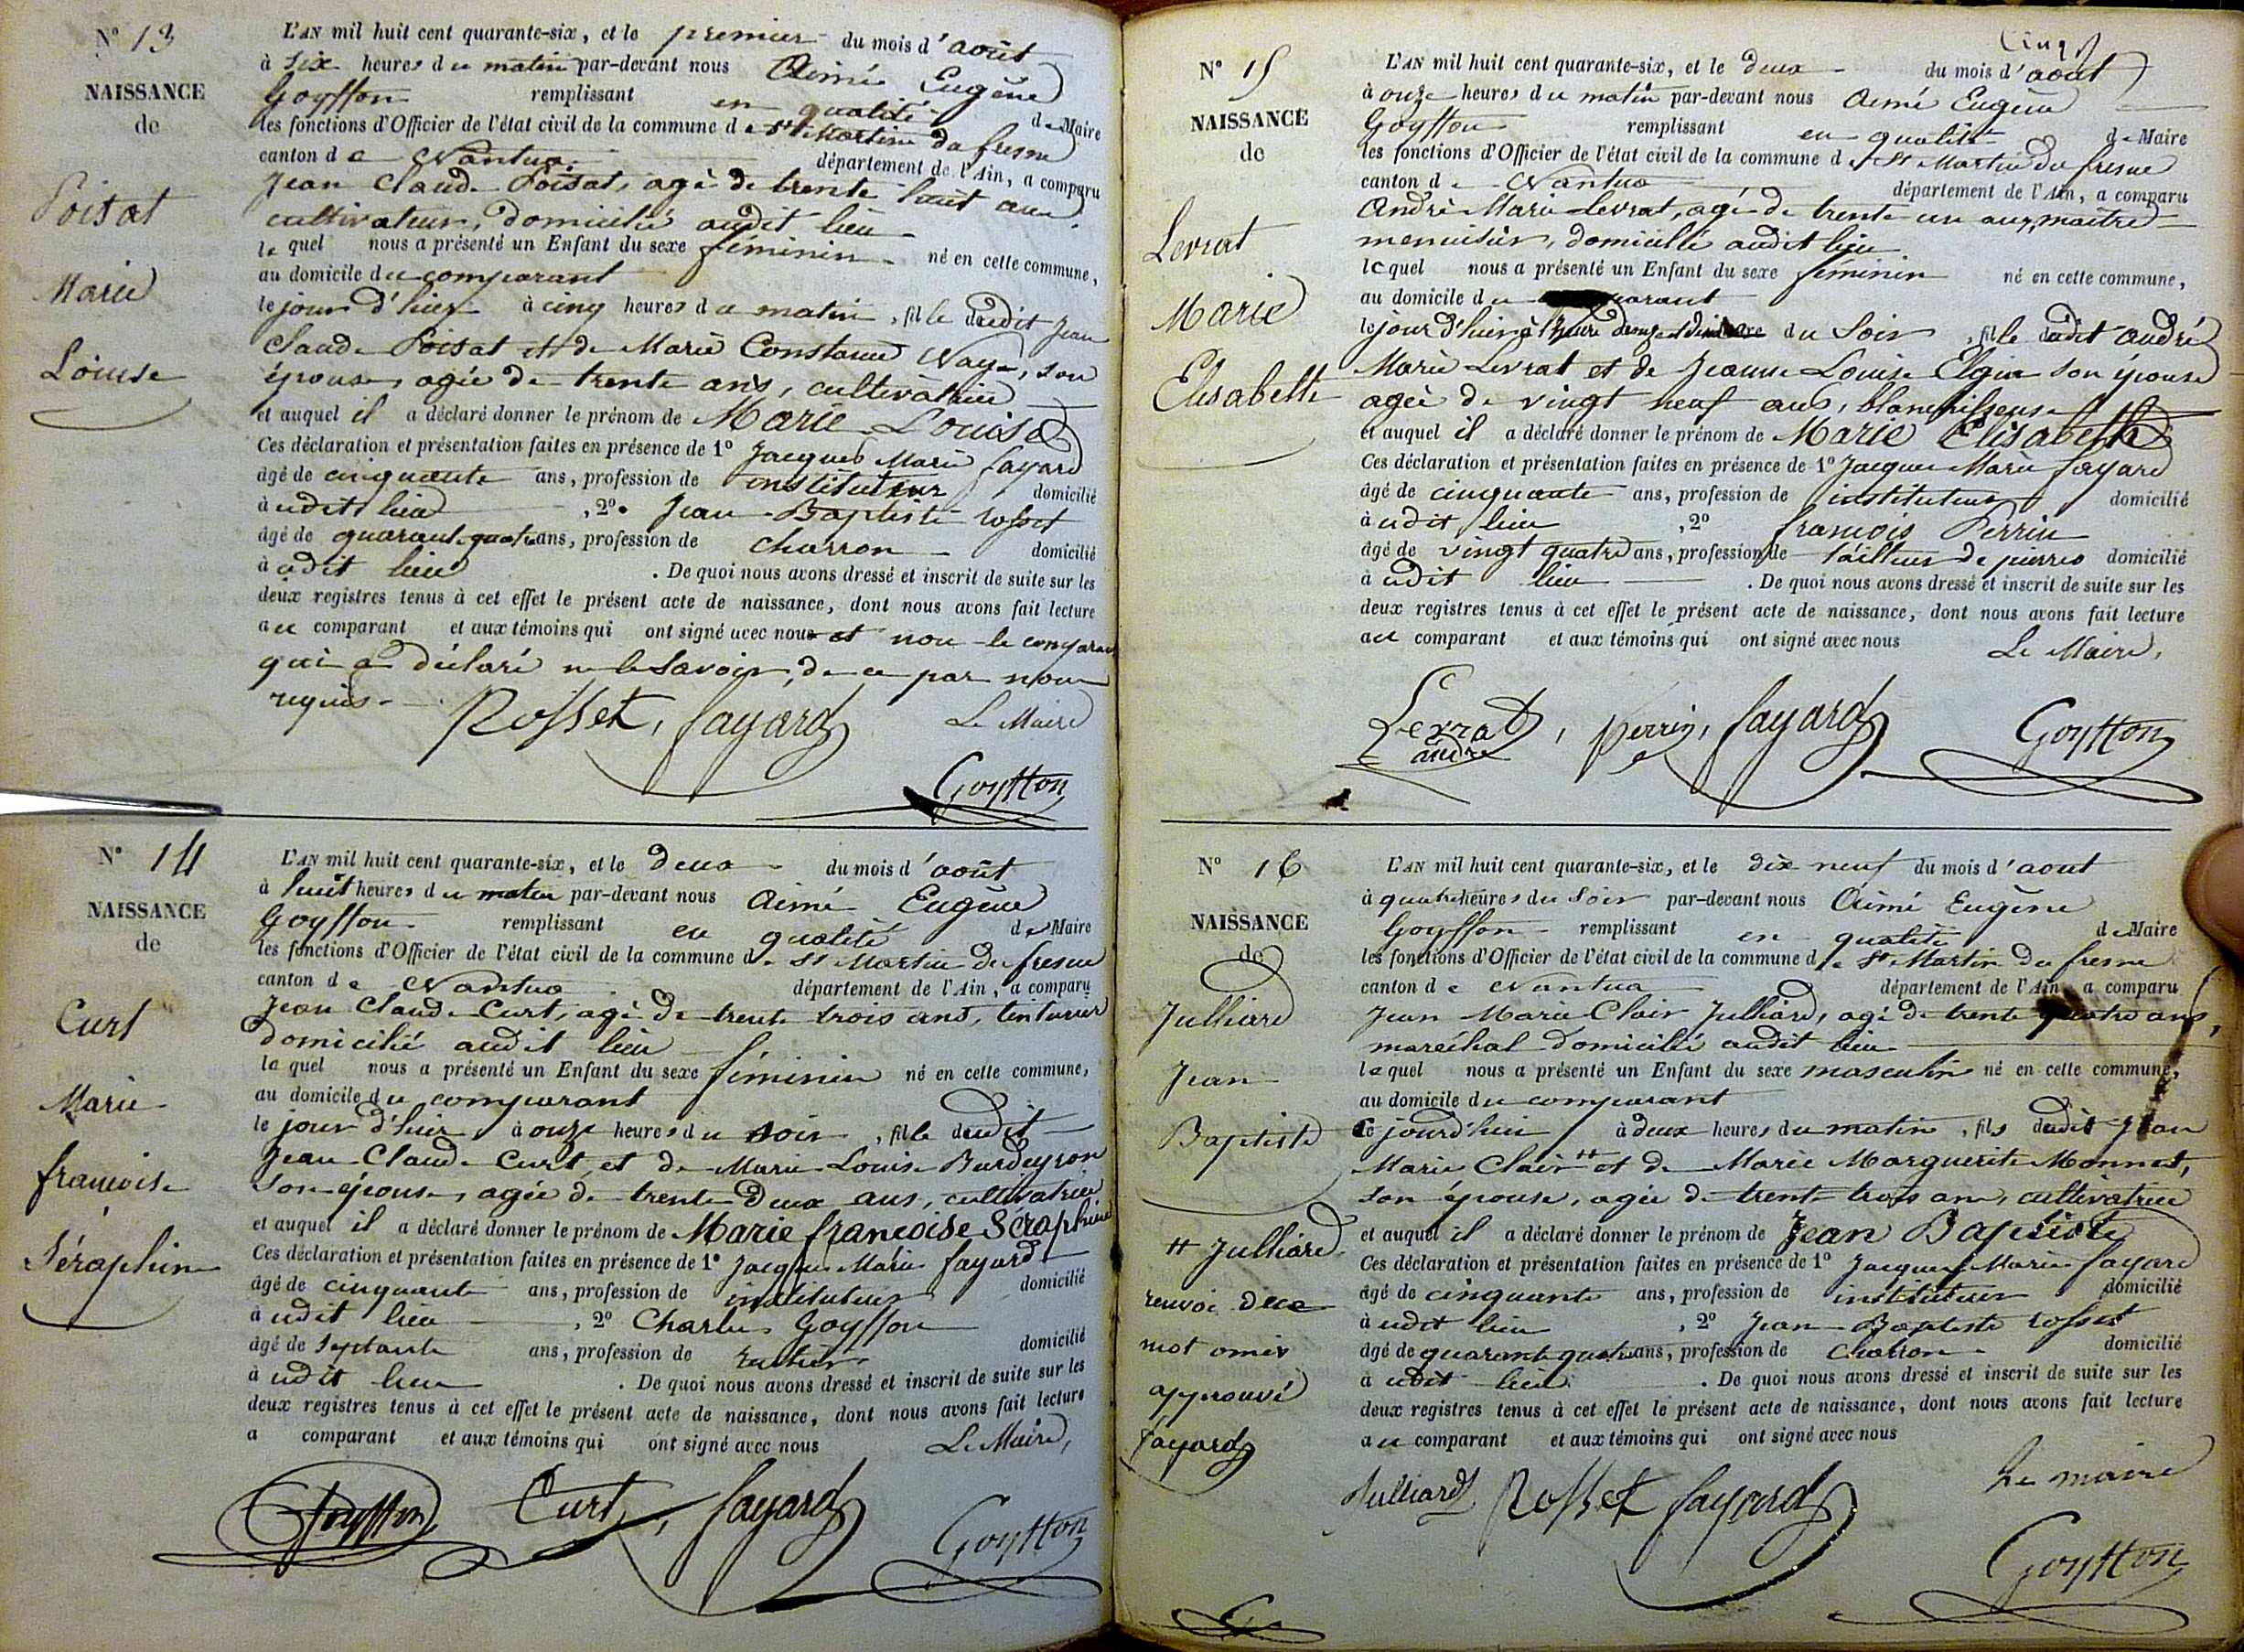 N° 13
NAISSANCE
de
Poisat
Marie
Louise
L'AN mil huit cent quarante-six, et le premier du mois d'août
à six heures du matin par-devant nous Aimé Eugène
Goyffon remplissant en qualité de Maire
les fonctions d'Officier de l'état civil de la commune de St Martin du fresne
canton de Nantua département de l'Ain, a comparu
Jean Claude Poisat, agé de trente huit ans
cultivateur, domicilié audit lieu
le quel nous a présenté un Enfant du sexe féminin né en cette commune,
au domicile du comparant
le jour d'hier à cinq heures du matin, fille dudit Jean
Claude Poisat et de Marie Constance Naye, son
épouse, agée de trente ans, cultivatrice
et auquel il a déclaré donner le prénom de Marie Louise
Ces déclaration et présentation faites en présence de 1° Jacques Marie fayard
âgé de cinquante ans, profession de instituteur domicilié
à udit lieu, 2° Jean Baptiste rosset
âgé de quarante quatre ans, profession de charron domicilié
à udit lieu. De quoi nous avons dressé et inscrit de suite sur les
deux registres tenus à cet effet le présent acte de naissance, dont nous avons fait lecture
au comparant et aux témoins qui ont signé avec nous et non le comparant
qui a déclaré ne le savoir, de ce par nous
requis.
Rosset, fayard Le Maire
Goyffon
N° 14
NAISSANCE
de
Curt
Marie
francoise
Séraphine
L'AN mil huit cent quarante-six, et le deux du mois d'août
à huit heures du matin par-devant nous Aimé Eugène
Goyffon remplissant en qualité de Maire
les fonctions d'Officier de l'état civil de la commune de St Martin du fresne
canton de Nantua département de l'Ain, a comparu
Jean Claude Curt, agé de trente trois ans, teinturier
domicilié audit lieu
le quel nous a présenté un Enfant du sexe féminin né en cette commune,
au domicile du comparant
le jour d'hier à onze heures du soir, fille dudit
Jean Claude Curt, et de Marie Louise Burdeyron
son épouse, agée de trente deux ans, cultivatrice
et auquel il a déclaré donner le prénom de Marie francoise Séraphine
Ces déclaration et présentation faites en présence de 1° Jacques Marie fayard
âgé de cinquante ans, profession de instituteur domicilié
à udit lieu, 2° Charles Goyffon
âgé de septante ans, profession de rentier domicilié
à udit lieu. De quoi nous avons dressé et inscrit de suite sur les
deux registres tenus à cet effet le présent acte de naissance, dont nous avons fait lecture
a comparant et aux témoins qui ont signé avec nous Le Maire,
Goyffon Curt, fayard
Goyffon
Cinq
N° 15
NAISSANCE
de
Levrat
Marie
Elisabeth
L'AN mil huit cent quarante-six, et le deux du mois d'août
à onze heures du matin par-devant nous Aimé Eugène
Goyffon remplissant en qualité de Maire
les fonctions d'Officier de l'état civil de la commune de St Martin du fresne
canton de Nantua département de l'Ain, a comparu
André Marie Levrat, agé de trente un ans, maitre
menuisier, domicilié audit lieu
le quel nous a présenté un Enfant du sexe féminin né en cette commune,
au domicile du comparant
le jour d'hier à du soir, fille dudit André
Marie Levrat et de Jeanne Louise Elgin son épouse
agée de vingt neuf ans, blanchisseuse
et auquel il a déclaré donner le prénom de Marie Elisabeth
Ces déclaration et présentation faites en présence de 1° Jacques Marie fayard
âgé de cinquante ans, profession de instituteur domicilié
à udit lieu, 2° francois Perrin
âgé de vingt quatre ans, profession de tailleur de pierres domicilié
à udit lieu. De quoi nous avons dressé et inscrit de suite sur les
deux registres tenus à cet effet le présent acte de naissance, dont nous avons fait lecture
au comparant et aux témoins qui ont signé avec nous Le Maire,
Levrat, perrin, fayard Goyffon
andré
N° 16
NAISSANCE
de
Julliard
Jean
Baptiste
# Julliard
renvoi de ce
mot omis
approuvé
fayard
L'AN mil huit cent quarante-six, et le dix neuf du mois d'aout
à quatre heures du soir par-devant nous Aimé Eugène
Goyffon remplissant en qualité de Maire
les fonctions d'Officier de l'état civil de la commune de St Martin du fresne
canton de Nantua département de l'Ain, a comparu
Jean Marie Clair Julliard, agé de trente quatre ans,
maréchal domicilié audit lieu
le quel nous a présenté un Enfant du sexe masculin né en cette commune,
au domicile du comparant
ce jourd'hui à deux heures du matin, fils dudit Jean
Marie Clair # et de Marie Marguerite Monnet,
son épouse, agée de trente trois ans, cultivatrice
et auquel il a déclaré donner le prénom de Jean Baptiste
Ces déclaration et présentation faites en présence de 1° Jacques Marie fayard
âgé de cinquante ans, profession de instituteur domicilié
à udit lieu, 2° Jean Baptiste rosset
âgé de quarante quatre ans, profession de charron domicilié
à udit lieu. De quoi nous avons dressé et inscrit de suite sur les
deux registres tenus à cet effet le présent acte de naissance, dont nous avons fait lecture
au comparant et aux témoins qui ont signé avec nous
Julliard Rosset fayard Le maire
Goyffon